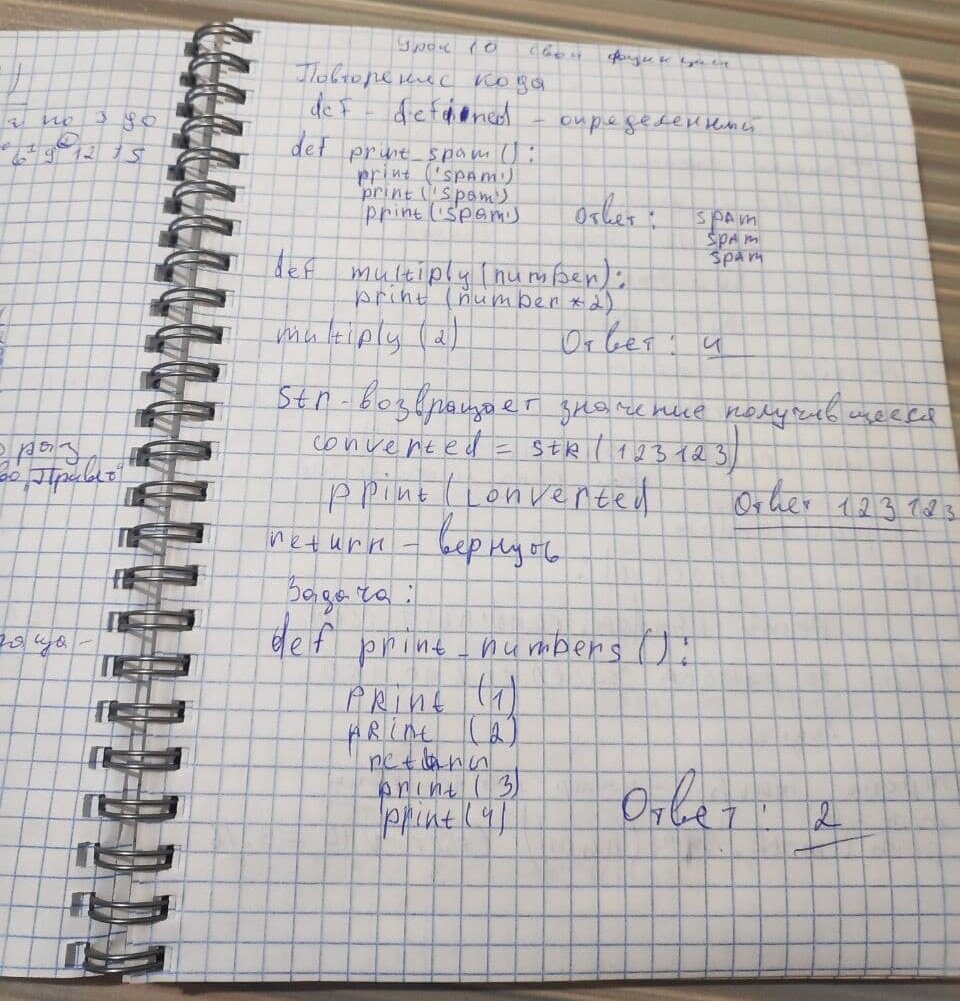 г по 3 до
6 9 12 15
раз
"Привет"
Урок 10 свои функции
Повторение кода
def - defined - определенный
def print_spam():
print('spam')
print('spam')
print('spam') Ответ: spam
spam
spam
def multiply(number):
print (number * 2)
multiply (2) Ответ: 4
str - возвращает значение получившееся
converted = str(123123)
print (converted Ответ 123123
return - вернуть
Задача:
def print_numbers():
print (1)
print (2)
return
print (3)
print (4) Ответ: 2